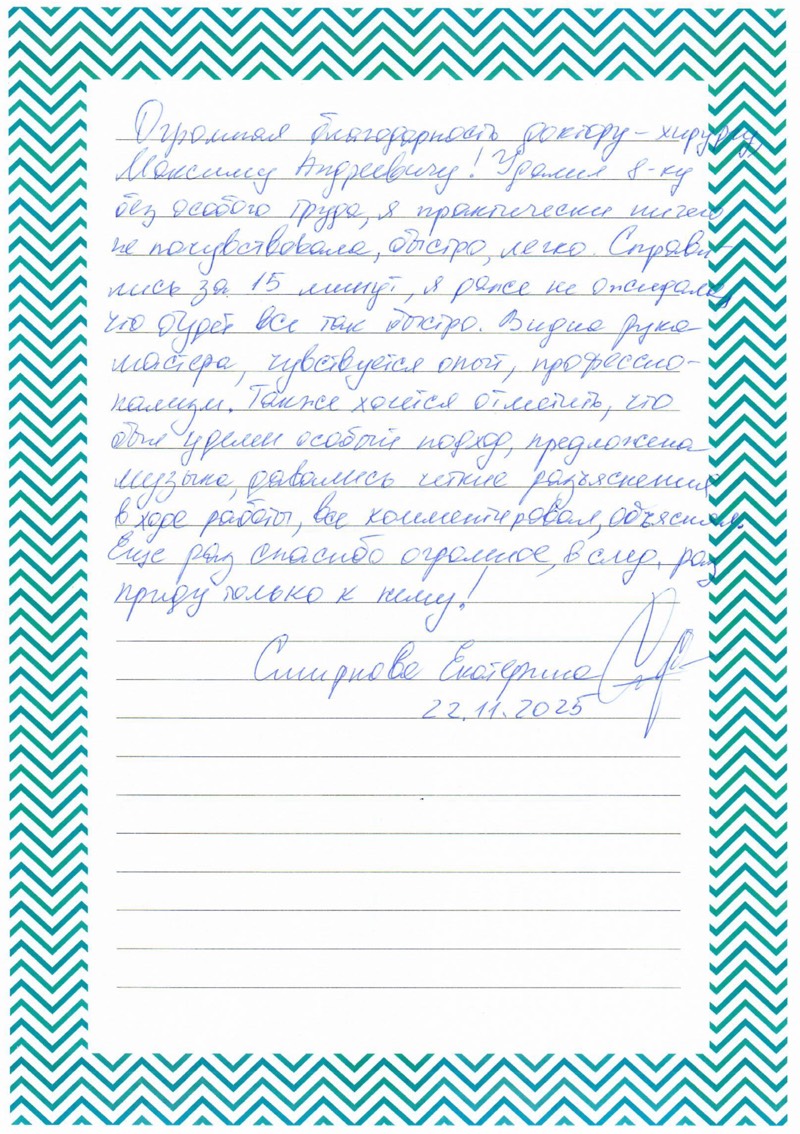 Огромная благодарность доктору-хирургу,
Максиму Андреевичу! Удалил 8-ку
без особого труда, я практически ничего
не почувствовала, быстро, легко. Справи-
лись за 15 минут, я даже не ожидала,
что будет все так быстро. Видна рука
мастера, чувствуется опыт, профессио-
нализм. Также хочется отметить, что
был уделен особый подход, предложена
музыка, давались четкие разъяснения
в ходе работы, все комментировал, объяснял.
Еще раз спасибо огромное, в след. раз
приду только к нему!
Смирнова Екатерина
22.11.2025